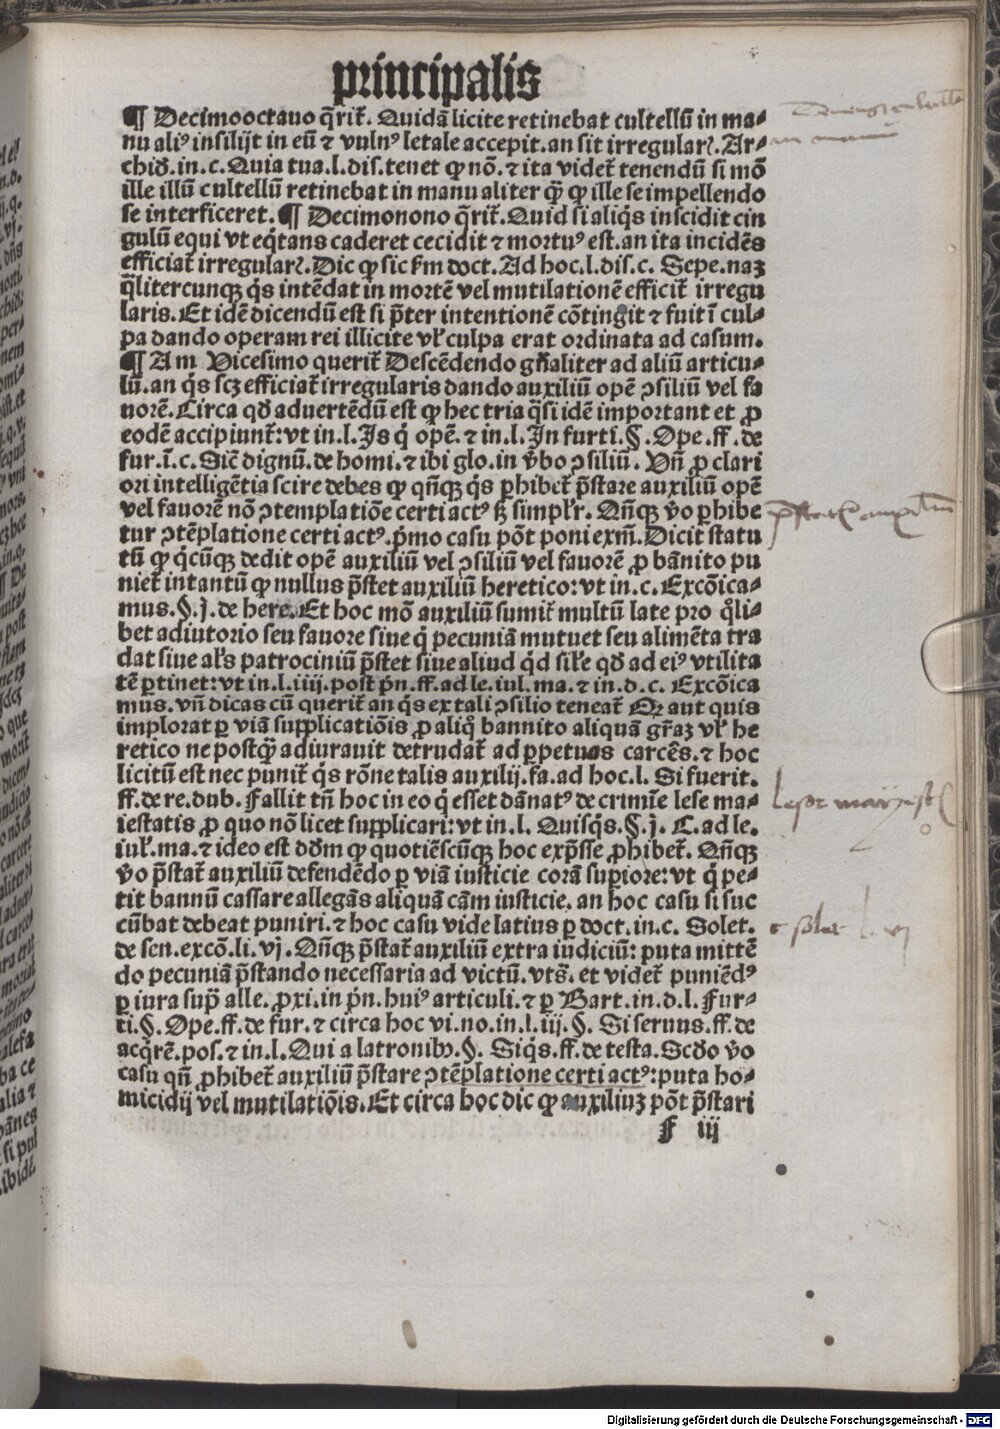 principalis
¶ Decimooctauo q̄rit̃. Quidã licite retinebat cultellũ in ma⸗
nu aliꝰ insilijt in eũ ⁊ vulnꝰ letale accepit. an sit irregularꝭ. Ar⸗
chið. in. c. Quia tua. l. dis. tenet ꝙ nõ. ⁊ ita videt̃ tenendũ si mõ
ille illũ cultellũ retinebat in manu aliter q̃ꝫ ꝙ ille se impellendo
se interficeret. ¶ Decimonono q̄rit̃. Quid si aliq̇s inscidit cin
gulũ equi vt eq̇tans caderet cecidit ⁊ mortuꝰ est. an ita incidẽs
efficiat̃ irregularꝭ. Dic ꝙ sic fm doct. Ad hoc. l. dis. c. Sepe. naꝫ
q̃litercunqꝫ q̇s intẽdat in mortẽ vel mutilationẽ efficit̃ irregu
laris. Et idẽ dicendũ est si p̃ter intentionẽ cõtingit ⁊ fuit ĩ cul⸗
pa dando operam rei illicite vl̕ culpa erat ordinata ad casum.
¶ Am Vicesimo querit̃ Descẽdendo gñaliter ad aliũ articu⸗
lũ. an q̇s scꝫ efficiat̃ irregularis dando auxiliũ opẽ ↄsiliũ vel fa
norẽ. Circa qð aduertẽdũ est ꝙ hec tria q̃si idẽ important et ꝓ
eodẽ accipiunt̃: vt in. l. Is q̇ opẽ. ⁊ in. l. In furti. §. Ope. ff. de
fur. ĩ. c. Sicẽ dignũ. de homi. ⁊ ibi glo. in v̄bo ↄsiliũ. Vñ ꝓ clari
ori intelligẽtia scire debes ꝙ qñqꝫ q̇s ꝓhibet̃ p̃stare auxiliũ opẽ
vel fauorẽ nõ ↄtemplatiõe certi actꝰ sꝫ simpl̕r. Qñqꝫ v̊o ꝓhibe
tur ↄtẽplatione certi actꝰ. p̃mo casu põt poni exm̃. Dicit statu
tũ ꝙ q̇cũqꝫ dedit opẽ auxiliũ vel ↄsiliũ vel fauorẽ ꝓ bãnito pu
niet̃ intantũ ꝙ nullus p̃stet auxiliũ heretico: vt in. c. Excõica⸗
mus. §. j. de here. Et hoc mõ auxiliũ sumit̃ multũ late pro q̊li⸗
bet adiutorio seu fauore siue q̇ pecuniã mutuet seu alimẽta tra
dat siue al̕s patrociniũ p̃stet siue aliud q̇d sil̕e qð ad eiꝰ vtilita
tẽ ꝑtinet: vt in. l. iiij. post pñ. ff. ad le. iul. ma. ⁊ in. d. c. Excõica
mus. vñ dicas cũ querit̃ an q̇s ex tali ↄsilio teneat̃ Qꝛ aut quis
implorat ꝑ viã supplicatiõis ꝓ aliq̊ bannito aliquã gr̃aꝫ vl̕ he
retico ne postq̃ꝫ adiurauit detrudat̃ ad ꝑpetuos carcẽs. ⁊ hoc
licitũ est nec punit̃ q̇s rõne talis auxilij. fa. ad hoc. l. Si fuerit.
ff. de re. dub. Fallit tñ hoc in eo q̇ esset dãnatꝰ de crimĩe lese ma⸗
iestatis ꝓ quo nõ licet supplicari: vt in. l. Quisq̇s. §. j. C. ad le.
iul̕. ma. ⁊ ideo est dðm ꝙ quotiẽscũqꝫ hoc exp̃sse ꝓhibet̃. Qñqꝫ
v̊o p̃stat̃ auxiliũ defendẽdo ꝑ viã iusticie corã supiore: vt q̇ pe⸗
tit bannũ cassare allegãs aliquã cãm iusticie. an hoc casu si suc
cũbat debeat puniri. ⁊ hoc casu vide latius ꝑ doct. in. c. Solet.
de sen. excõ. li. vj. Qñqꝫ p̃stat̃ auxiliũ extra iudiciũ: puta mittẽ
do pecuniã p̃stando necessaria ad victũ. vts̃. et videt̃ puniẽdꝰ
ꝑ iura sup̃ alle. ꝓxi. in pñ. huiꝰ articuli. ⁊ ꝑ Bart. in. d. l. Fur⸗
ti. §. Ope. ff. de fur. ⁊ circa hoc vi. no. in. l. iij. §. Si seruus. ff. de
acq̇rẽ. pos. ⁊ in. l. Qui a latronibꝰ. §. Siq̇s. ff. de testa. Scðo v̊o
casu qñ ꝓhibet̃ auxiliũ p̃stare ↄtẽplatione certi actꝰ: puta ho⸗
micidij vel mutilatiõis. Et circa hoc dic ꝙ auxiliuꝫ põt p̃stari
F iij
c solet l. vj
Digitalisierung gefördert durch die Deutsche Forschungsgemeinschaft - DFG